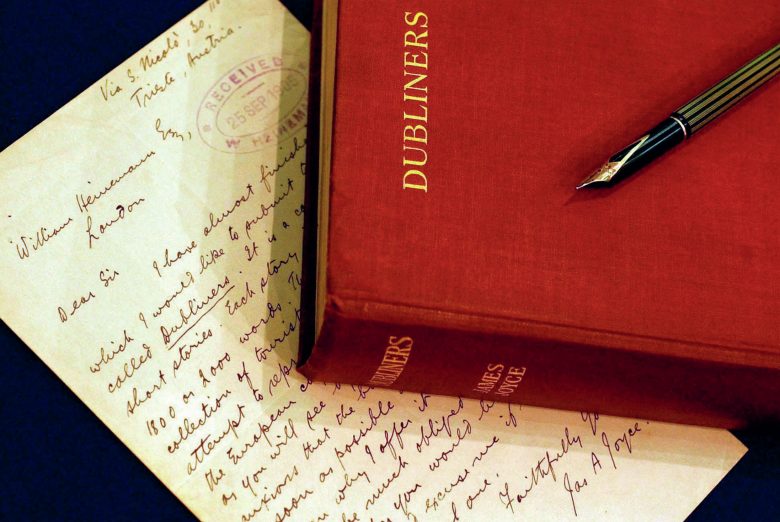 Via S. Nicolò, 30, II
Trieste, Austria.
RECEIVED
25 SEP 1905
William Heinemann Esq,
London
Dear Sir
I have almost finishe
which I would like to submit t
called Dubliners. It is a co
short stories. Each story
1800 or 2000 words.
collection of tourist
attempt to repr
the European c
as you will see
anxious that the b
soon as possible
why I offer it
be much obliged
you would be
excuse me if
Faithfully Yo
Jas A Joyce.
DUBLINERS
DUBLINERS
JAMES
JOYCE